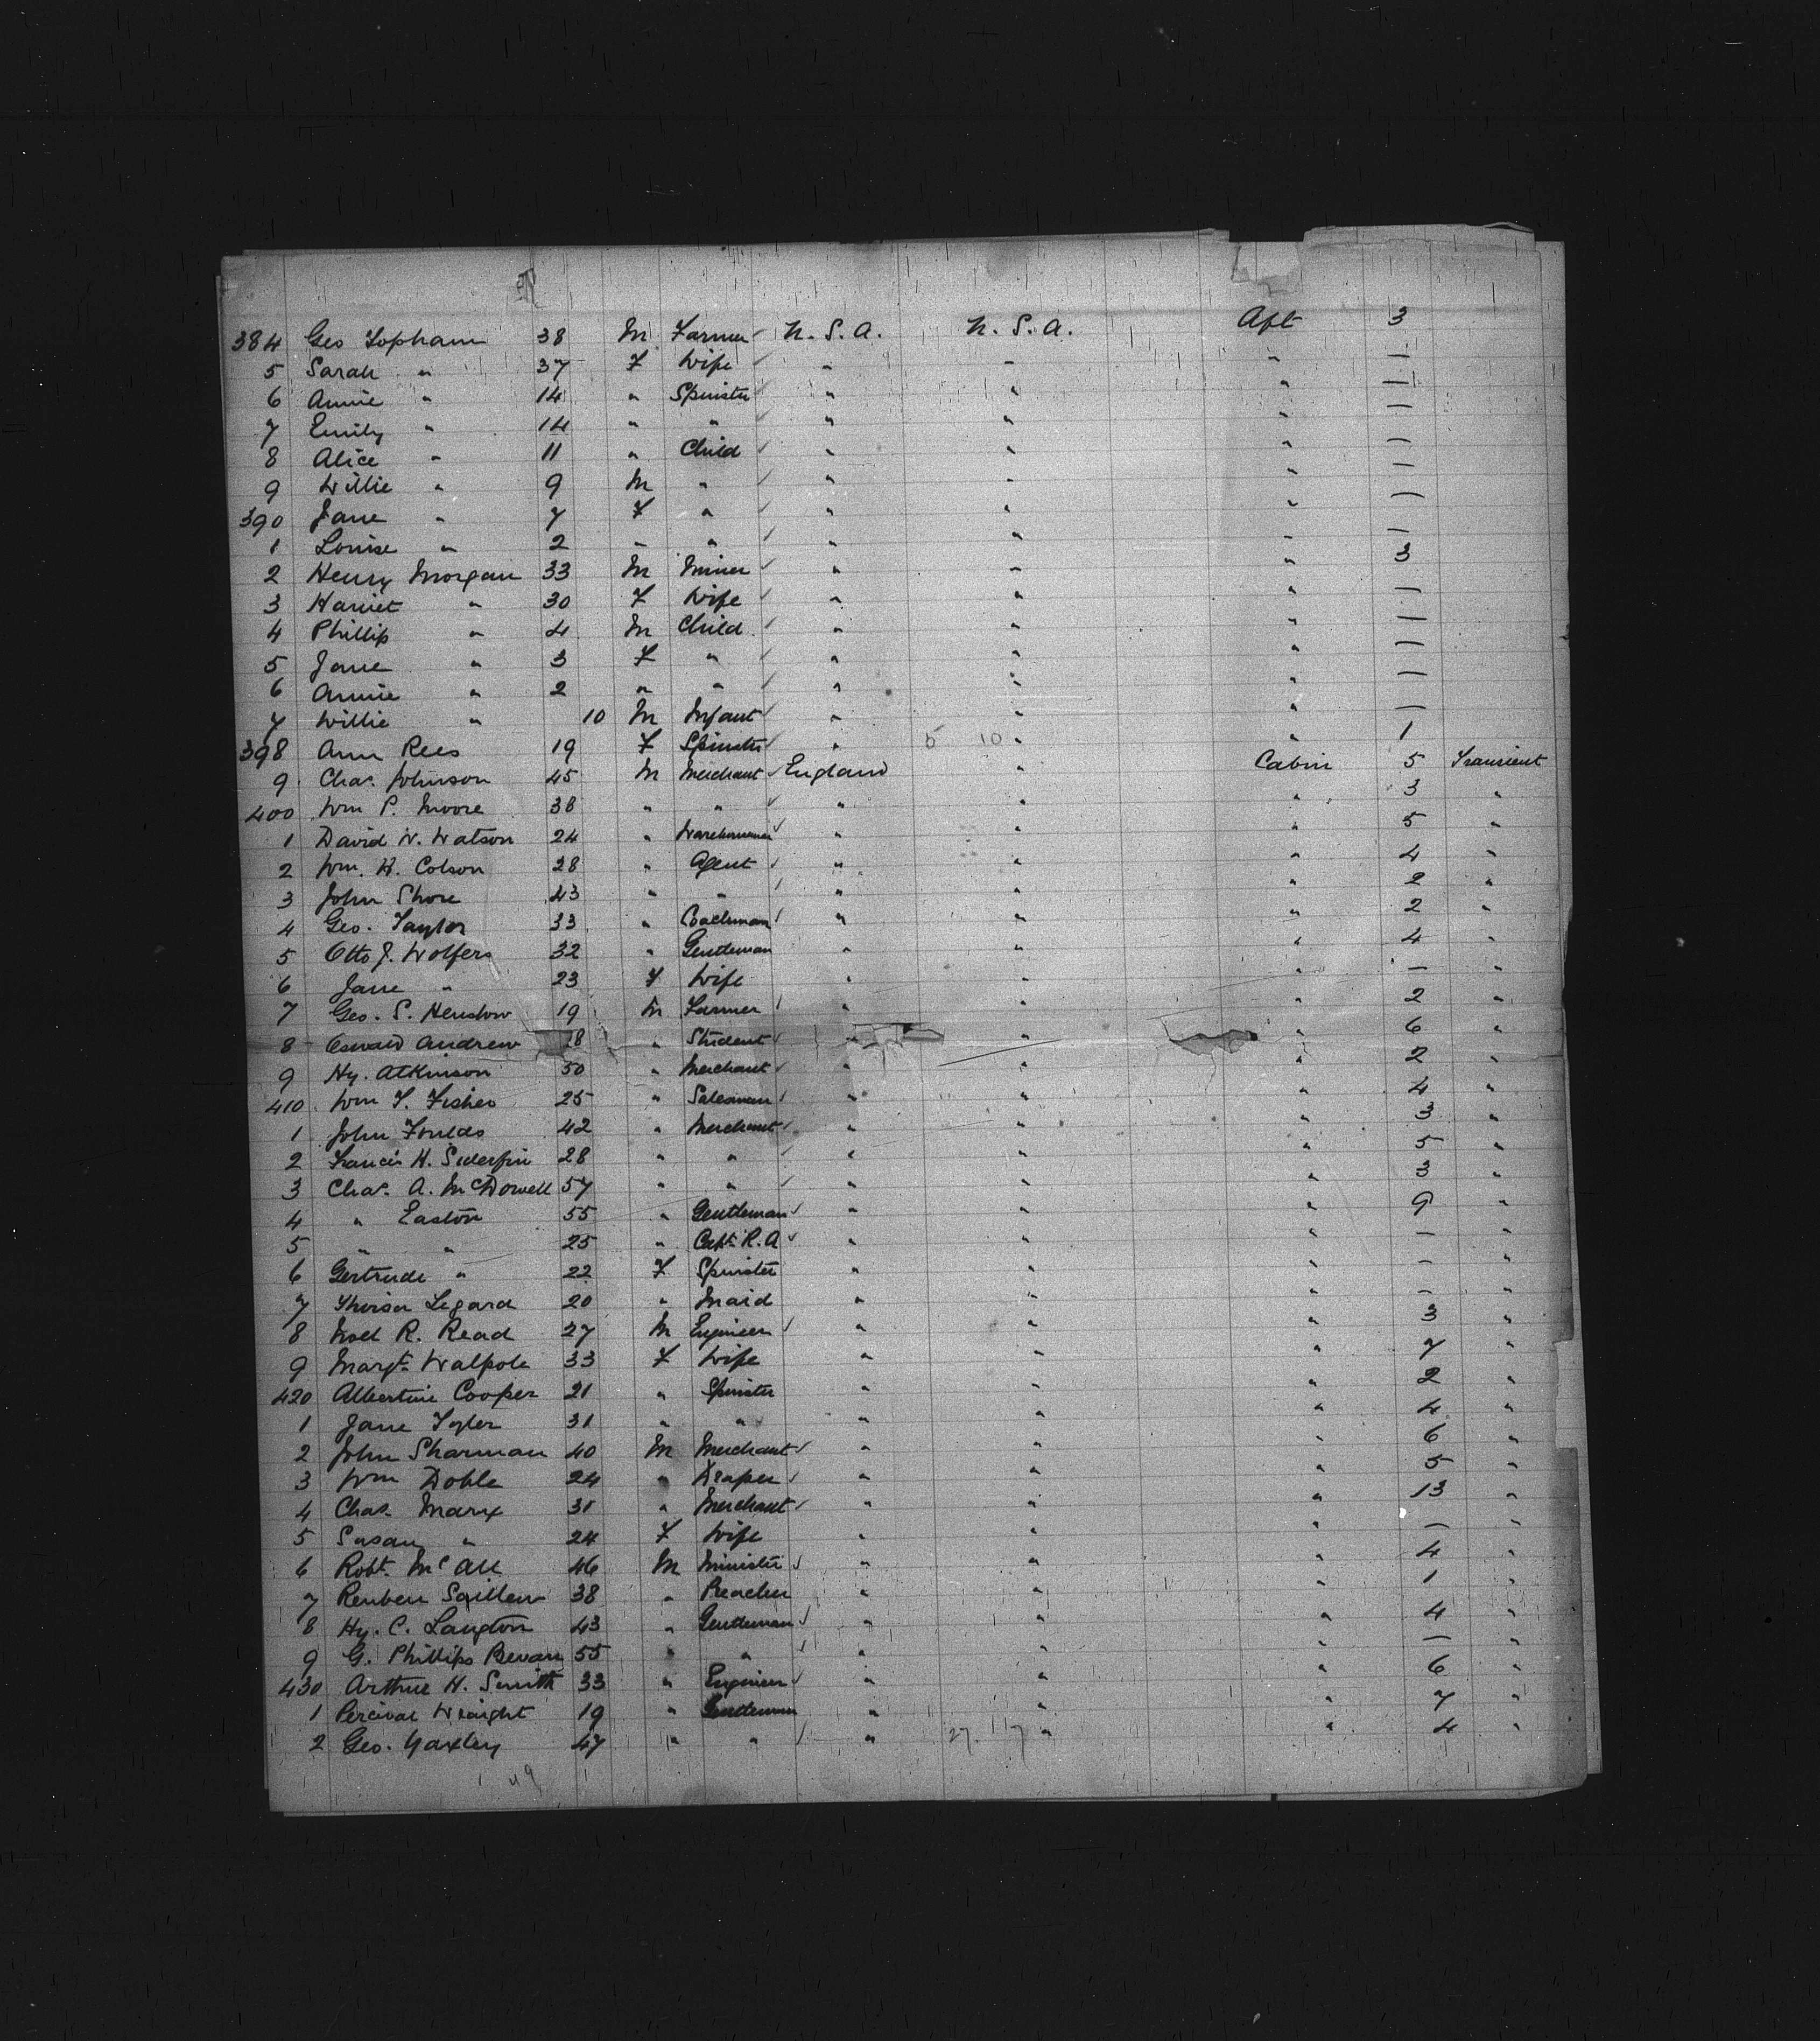 384 Geo Topham 38 M Farmer U.S.A. U.S.A. Aft 3
5 Sarah " 37 F Wife " " " —
6 Annie " 14 " Spinster " " " —
7 Emily " 14 " " " " " —
8 Alice " 11 " Child " " " —
9 Willie " 9 M " " " " —
390 Jane " 7 F " " " " —
1 Louise " 2 " " " " " —
2 Henry Morgan 33 M Miner " " " 3
3 Harriet " 30 F Wife " " " —
4 Phillip " 4 M Child " " " —
5 Jane " 3 F " " " " —
6 Annie " 2 " " " " " —
7 Willie " 10 M Infant " " " —
398 Ann Rees 19 F Spinster " 5 10 " " 1
9 Chas. Johnson 45 M Merchant England " Cabin 5 Transient
400 Wm P. Moore 38 " " " " " 3 "
1 David W. Watson 24 " Warehouseman " " " 5 "
2 Wm. H. Colson 28 " Agent " " " 4 "
3 John Shore 43 " " " " " 2 "
4 Geo. Taylor 33 " Coachman " " " 2 "
5 Otto J. Wolfers 32 " Gentleman " " " 4 "
6 Jane " 23 F Wife " " " — "
7 Geo. S. Henslow 19 M Farmer " " " 2 "
8 Oswald Andrew 18 " Student " " " 6 "
9 Hy. Atkinson 50 " Merchant " " " 2 "
410 Wm T. Fisher 25 " Salesman " " " 4 "
1 John Foulds 42 " Merchant " " " 3 "
2 Francis H. Siderfin 28 " " " " " 5 "
3 Chas. A. McDowell 57 " " " " " 3 "
4 " Easton 55 " Gentleman " " " 9 "
5 " " 25 " Capt. R.A " " " — "
6 Gertrude " 22 F Spinster " " " — "
7 Legard 20 " Maid " " " — "
8 Noel R. Read 27 M Engineer " " " 3 "
9 Margt. Walpole 33 F Wife " " " 7 "
420 Albertine Cooper 21 " Spinster " " " 2 "
1 Jane Tyler 31 " " " " " 4 "
2 John Sharman 40 M Merchant " " " 6 "
3 Wm Doble 24 " Draper " " " 5 "
4 Chas. Marx 31 " Merchant " " " 13 "
5 Susan " 24 F Wife " " " — "
6 Robt. McAll 46 M Minister " " " 4 "
7 Reuben Saillens 38 " Preacher " " " 1 "
8 Hy. C. Langton 43 " Gentleman " " " 4 "
9 G. Phillips Bevan 55 " " " " " — "
430 Arthur H. Smith 33 " Engineer " " " 6 "
1 Percival Wraight 19 " Gentleman " " " 7 "
2 Geo. Yaxley 47 " " " 27 17 " " 4 "
49